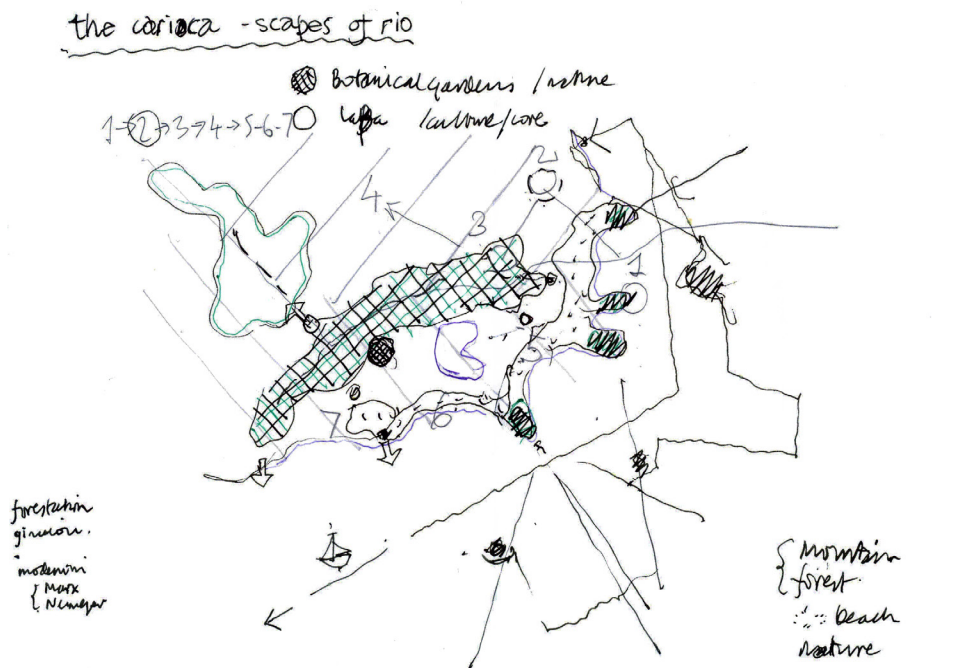 the carioca - scapes of rio
Botanical gardens / nature
1→2→3→4→5-6-7 Lapa /culture/core
2
4
3
1
5
7
6
forestation
modernism
{ Marx
{ Niemeyer
{ Mountain
{ forest
beach
nature